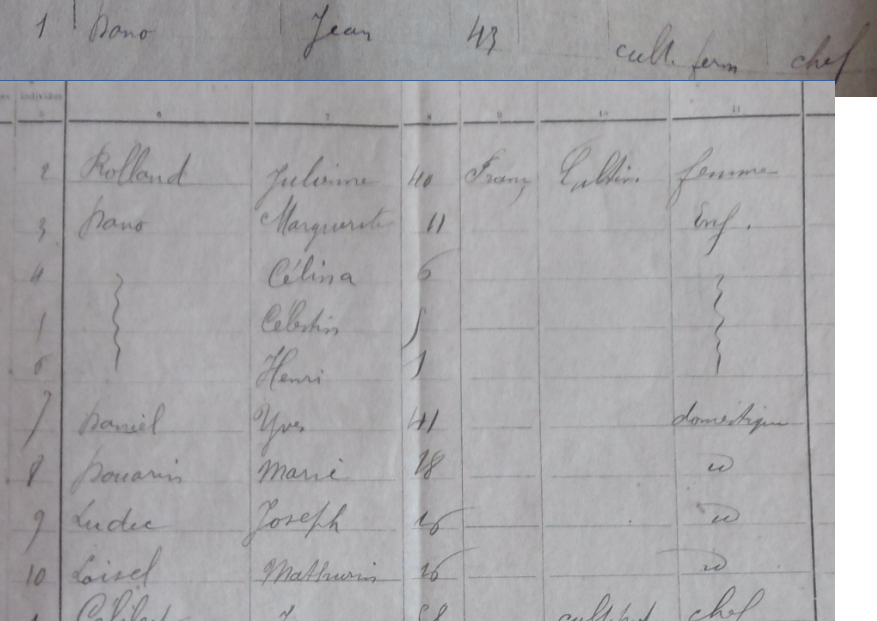 1 Dano Jean 43 cult. ferm chef
individus
6 7 8 9 10 11
2 Rolland Julienne 40 Franç Cultiv. femme
3 Dano Marguerite 11 Enf.
4 Célina 6
5 Célestin 5
6 Henri 1
7 Daniel Yves 41 domestique
8 Marie 18 id
9 Ludec Joseph 16 id
10 Loisel Mathurin 16 id
chef